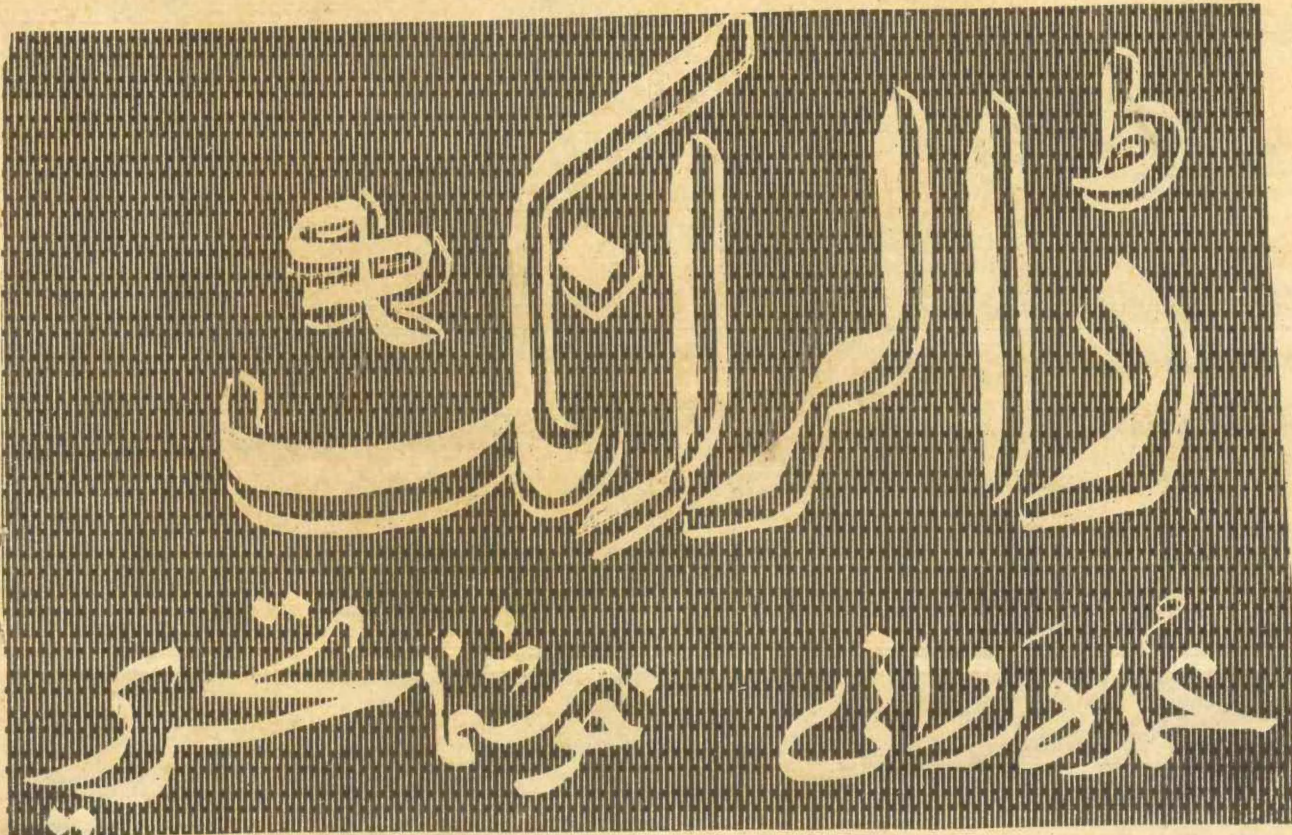 ڈالر اِنک
عُمدہ رَوانی خوشنما تحریر